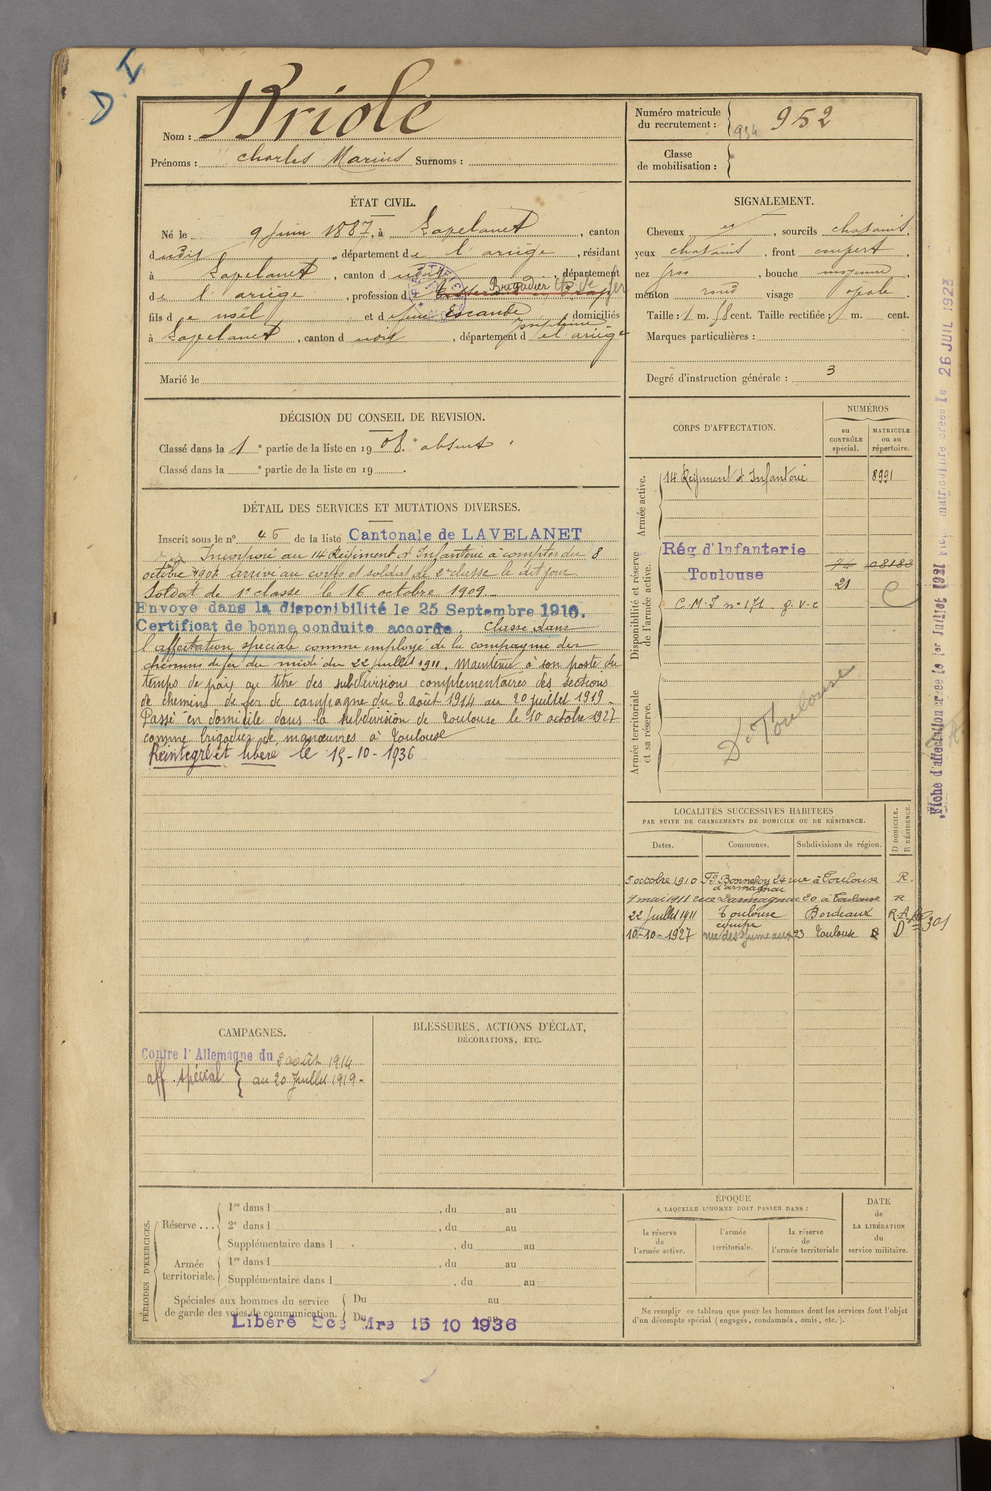 D I
Nom : Briole
Prénoms : Charles Marius Surnoms :
Numéro matricule du recrutement : 934 952
Classe de mobilisation :
ÉTAT CIVIL.
Né le 9 Juin 1887, à Lapelanet, canton
d udit, département de l'ariège, résidant
à Lapelanet, canton d udit, département
de l'ariège, profession d Brigadier
fils de noël et d Escande, domiciliés
à Lapelanet, canton d udit, département d el ariège
Marié le
SIGNALEMENT.
Cheveux et, sourcils chatains,
yeux chatains, front couvert
nez gros, bouche moyenne,
menton rond visage ovale.
Taille : 1 m. 58 cent. Taille rectifiée : m. cent.
Marques particulières :
Degré d'instruction générale : 3
DÉCISION DU CONSEIL DE REVISION.
Classé dans la 1e partie de la liste en 1908. "absent"
Classé dans la e partie de la liste en 19 .
DÉTAIL DES SERVICES ET MUTATIONS DIVERSES.
Inscrit sous le n° 45 de la liste Cantonale de LAVELANET
Incorporé au 14 Régiment d'Infanterie à compter du 8
octobre 1908 arrivé au corps et soldat de 2e classe le dit jour
Soldat de 1e classe le 16 octobre 1909.
Envoyé dans la disponibilité le 25 Septembre 1910.
Certificat de bonne conduite accordé Classé dans
l'affectation spéciale comme employé de la compagnie des
chemins de fer du midi du 22 juillet 1911. Maintenu à son poste du
temps de paix au titre des subdivisions complémentaires des sections
de chemins de fer de campagne du 2 août 1914 au 20 juillet 1919.
Passé en domicile dans la subdivision de Toulouse le 10 octobre 1927
comme brigadier de manœuvres à Toulouse
Réintégré et libéré le 15-10-1936
CORPS D'AFFECTATION.
NUMÉROS
au CONTRÔLE spécial.
MATRICULE ou au répertoire.
Armée active.
14 Régiment d'Infanterie 8991
Disponibilité et réserve de l'armée active.
Rég d'Infanterie
Toulouse
21
C.M.I n° 171 g.v.c
Armée territoriale et sa réserve.
Dt Toulouse
LOCALITÉS SUCCESSIVES HABITÉES
PAR SUITE DE CHANGEMENTS DE DOMICILE OU DE RÉSIDENCE.
Dates. Communes. Subdivisions de région. D DOMICILE. R RÉSIDENCE.
5 octobre 1910 Fg Bonnefoy 24 rue à Toulouse R.
d'armagnac
7 mai 1911 rue Darmagnac 20 à Toulouse R
22 juillet 1911 Toulouse Bordeaux R-A
10-10-1927 rue des Jumeaux 23 Toulouse D
301
CAMPAGNES.
Contre l'Allemagne du 2 août 1914
aff. spécial au 20 Juillet 1919.
BLESSURES, ACTIONS D'ÉCLAT,
DÉCORATIONS, ETC.
PÉRIODES D'EXERCICES.
Réserve ...
1re dans l , du au
2e dans l , du au
Supplémentaire dans l , du au
Armée territoriale.
1re dans l , du au
Supplémentaire dans l , du au
Spéciales aux hommes du service de garde des voies de communication.
Du au
Du au
Libéré 15 10 1936
ÉPOQUE
A LAQUELLE L'HOMME DOIT PASSER DANS :
la réserve de l'armée active.
l'armée territoriale.
la réserve de l'armée territoriale
DATE de LA LIBÉRATION du service militaire.
Ne remplir ce tableau que pour les hommes dont les services font l'objet
d'un décompte spécial (engagés, condamnés, omis, etc.).
Fiche d'affectation créée le 1er Juillet 1921 matriculaire créée le 26 JUIL 1923